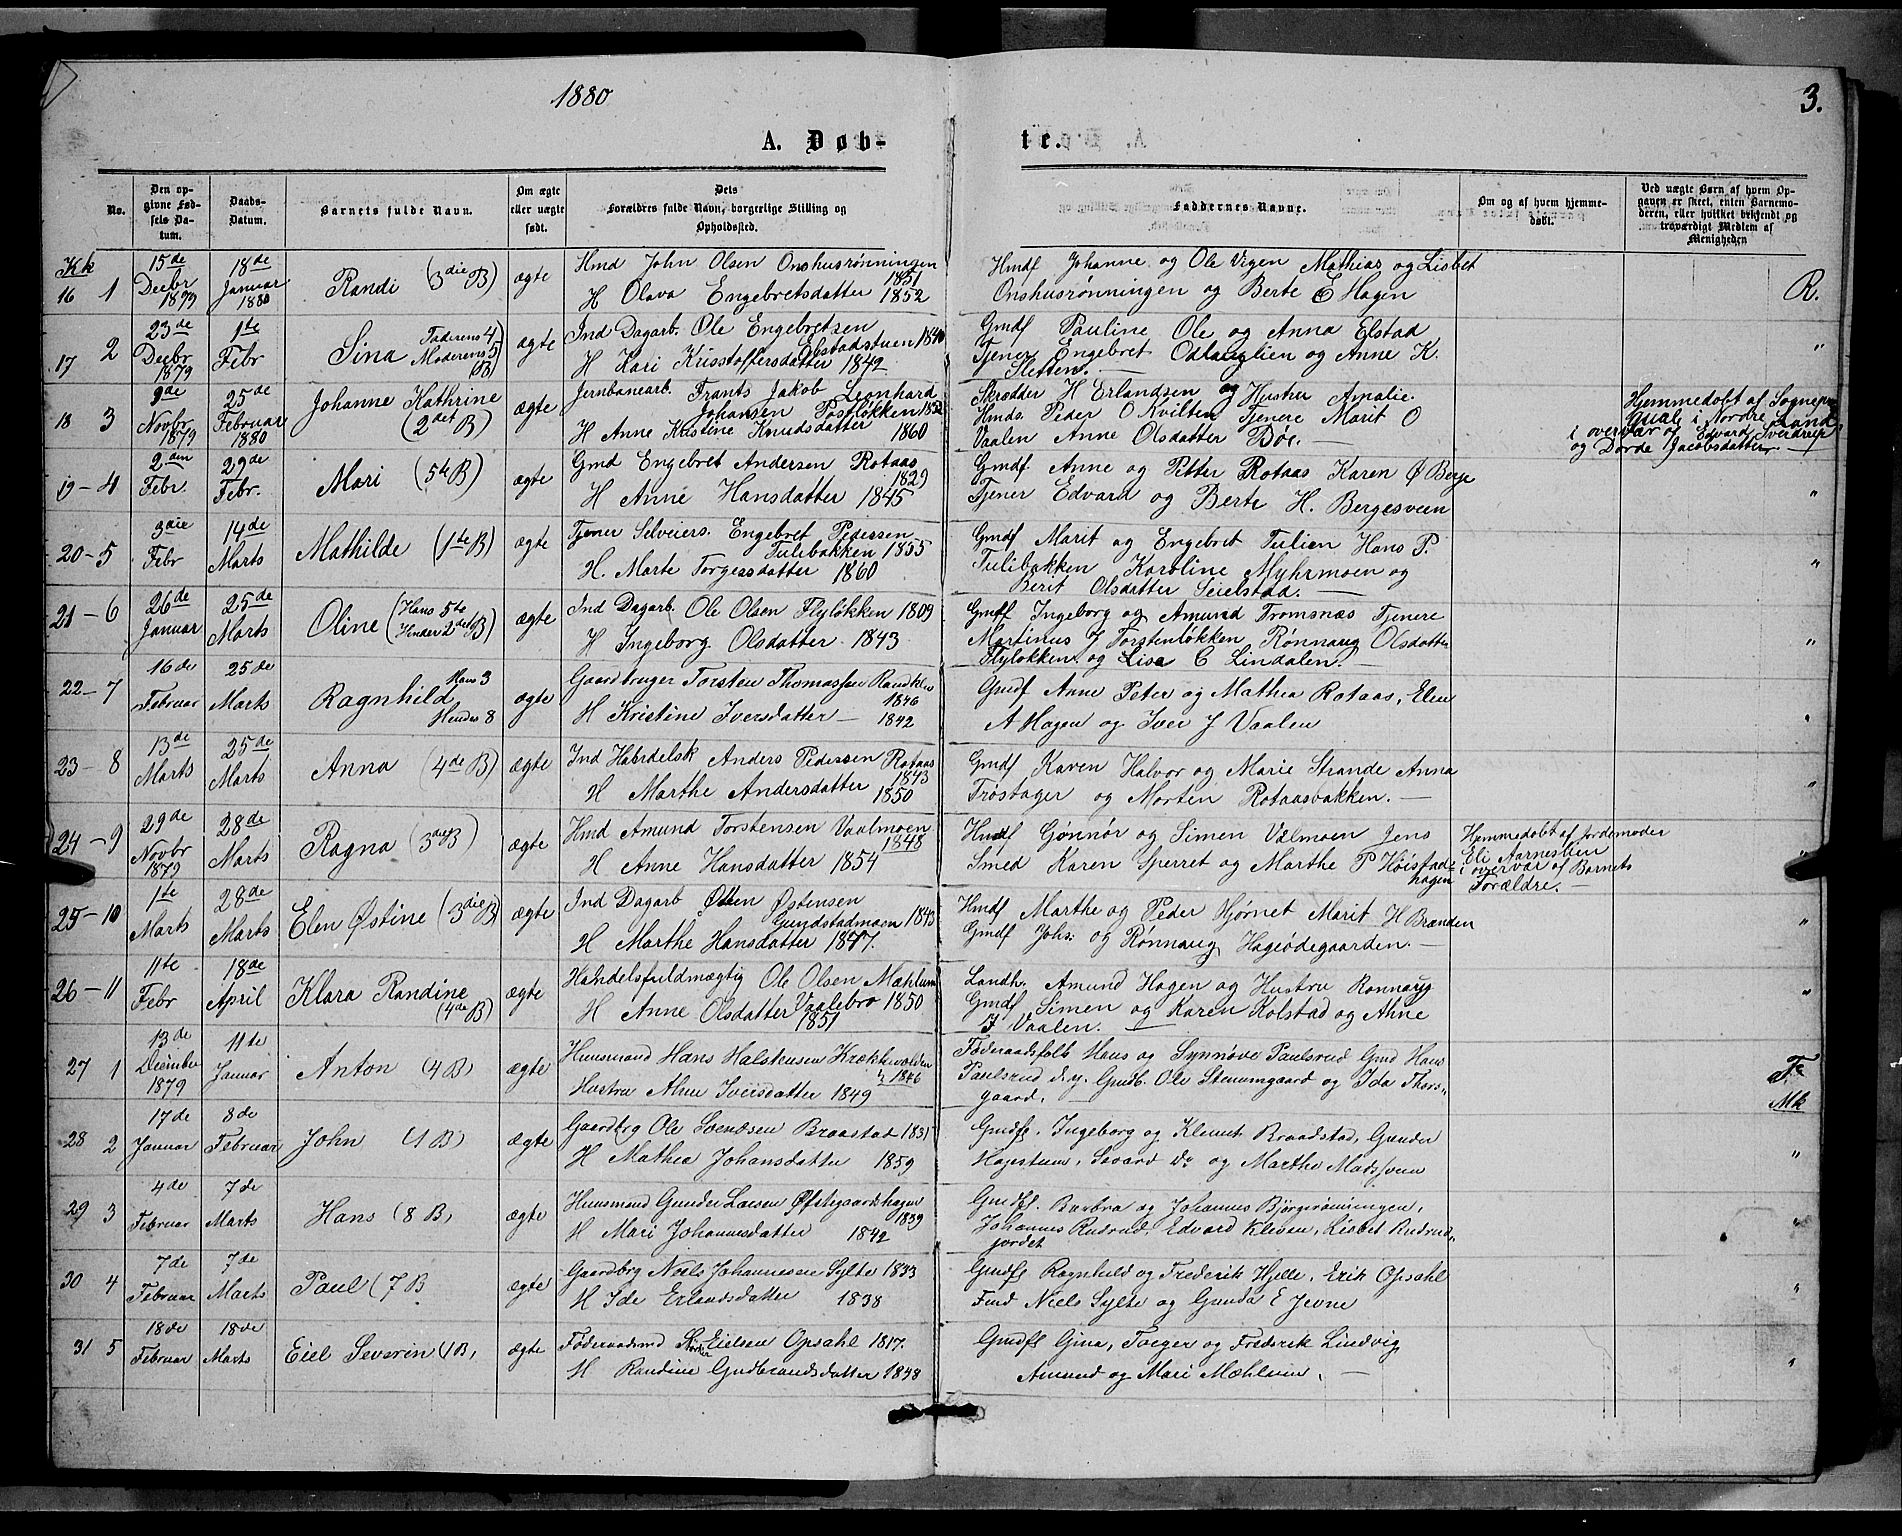 1880
3.
A. Døb-
te.
No.
Den op-
givne Fød-
sels Da-
tum.
Daabs-
Datum.
Barnets fulde Navn.
Om ægte
eller uægte
født.
Dets
Forældres fulde Navn, borgerlige Stilling og
Opholdssted.
Faddernes Navne.
Om og af hvem hjemme-
døbt.
Ved uægte Børn af hvem Op-
gaven er skeet, enten Barnemo-
deren, eller hvilket bekjendt og
troværdigt Medlem af
Menigheden
Kk
16 1
15de Decbr 1879
18de Januar 1880
Randi (3die B)
ægte
Hmd John Olsen Onshusrønningen 1851
H Olava Engebretsdatter 1852
Hmdf Johanne og Ole Vigen Mathias og Lisbet
Onshusrønningen og Berte E Hagen
R.
17 2
23de Decbr 1879
1te Febr
Sina Faderens 4 Moderens 5 (B)
ægte
Ind Dagarb. Ole Engebretsen
Elstadstuen 1840
H Kari Kristoffersdatter 1842
Gmdf Pauline Ole og Anna Elstad
Tjener Engebret Odlauglien og Anne K.
Sletten.
"
18 3
9de Novbr 1879
25de Februar 1880
Johanne Kathrine
(2det B)
ægte
Jernbanearb. Frants Jakob Leonhard
Johansen Postløkken 1852
H Anne Kristine Knudsdatter 1860
Skrædder H Erlandsen og Hustru Amalie
Hmds. Peder O Kvilten Tjenere Marit O
Vaalen Anne Olsdatter Bøe. —
Hjemmedøbt af Sognepr
Quale i Nordre Land
i overvær af Edvard Sverdrup
og Dorde Jacobsdatter. —
19 – 4
2den Febr.
29de Febr.
Mari (5te B)
ægte
Gmd Engebret Andersen Rotaas 1829
H Anne Hansdatter 1845
Gmdf. Anne og Petter Rotaas Karen Ø Berge
Tjener Edvard og Berte H. Bergesveen
"
20 – 5
3die Febr
14de Marts
Mathilde (1te B)
ægte
Tjener Selveiers. Engebret Pedersen
Tulibakken 1855
H. Marte Torgersdatter 1860
Gmdf Marit og Engebret Tulien Hans P.
Tulibakken Karoline Myhrmoen og
Berit Olsdatter Seielstad. —
"
21 – 6
26de Januar
25de Marts
Oline (Hans 5te Hendes 2det B)
ægte
Ind Dagarb. Ole Olsen Flyløkken 1809
H Ingeborg Olsdatter. 1843
Gmdf Ingeborg og Amund Tromsnæs Tjenere
Martinus J Torstenløkken Rønnaug Olsdatter
Flyløkken og Lisa C Lindalen. —
"
22 – 7
16de Februar
25de Marts
Ragnhild Hans 3 Hendes 8
ægte
Gaardbruger Torsten Thomassen Randklev 1846
H Kristine Iversdatter — 1842
Gmdf Anne Peter og Mathea Rotaas, Elen
A Hagen og Iver J Vaalen
"
23 – 8
13de Marts
25de Marts
Anna (4de B)
ægte
Anders Pedersen Rotaas 1843
H Marthe Andersdatter 1850
Gmdf Karen Halvor og Marie Strande Anna
Trøstager og Morten Rotaasbakken. —
"
24 – 9
29de Novbr 1879
28de Marts
Ragna (3die B)
ægte
Hmd Amund Torstensen Vaalmoen 1848
H Anne Hansdatter 1854
Hmdf Gønnør og Simen Vælmoen Jens
Smed Karen Sperret og Marthe P Høistad-
hagen
Hjemmedøbt af Jordemoder
Eli Aarneslien
i overvær af Barnets
Forældre. —
"
25 – 10
1te Marts
28de Marts
Elen Østine (3die B)
ægte
Ind Dagarb Østen Østensen
Gundstadmoen 1843
H Marthe Hansdatter 1847.
Hmdf Marthe og Peder Hjørnet Marit H Brænden
Gmdf Johs: og Rønnaug Hageødegaarden. —
"
26 – 11
11te Febr
18de April
Klara Randine
(4de B)
ægte
Handelsfuldmægtig Ole Olsen Mæhlum
Vaalebro 1850
H Anne Olsdatter 1851
Landh. Amund Hagen og Hustru Rønnaug
Gmdf Simen og Karen Kolstad og Anne
J Vaalen. —
"
27 1
13de December 1879
11te Januar
Anton (4 B)
ægte
Huusmand Hans Halstensen Krækkevolden
1846
Hustru Ane Iversdatter 1849
Føderaadsfolk Hans og Synnøve Paulsrud Gmd Hans
Paulsrud d.y. Gmdb. Ole Stenumgaard og Ida Thors-
gaard.
Fr
Mk
28 2
17de Januar
8de Februar
John (1 B)
ægte
Gaardbrg Ole Svendsen Braastad 1831
H Mathea Johansdatter 1859
Gmdf. Ingeborg og Klemet Braadstad, Gunder
Hagestuen, Sevard Do og Marthe Madssveen
"
29 3
4de Februar
7de Marts
Hans (8 B)
ægte
Huusmand Gunder Larsen Øfstegaardshagen 1839
H Mari Johannesdatter 1842
Gmdf. Barbra og Johannes Bjørgerønningen,
Johannes Rudrud, Edvard Kleven, Lisbet Rudrud-
jordet
"
30 4
7de Februar
7de Marts
Paul (7 B
ægte
Gaardbrg Niels Johannesen Sylte 1833
H Ide Erlandsdatter 1838
Gmdf Ragnhild og Frederik Hjelle, Erik Opsahl
Niels Sylte og Gunda E Jevne
"
31 5
18de Februar
18de Marts
Eiel Severin (1 B)
ægte
Føderaadsmd Eielsen Opsahl 1817.
H Randine Gudbrandsdatter 1848
Gmdf Gina, Torger og Frederik Lindvig
Amund og Mari Mæhlum. —
"